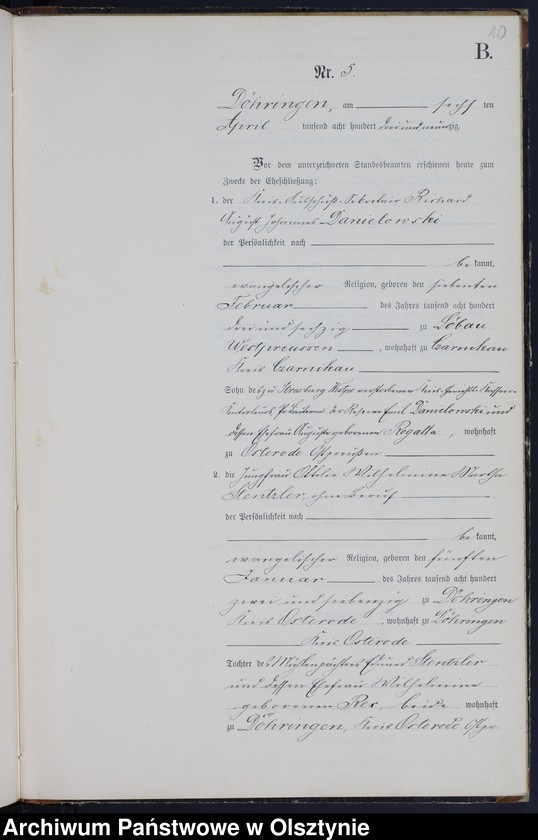 10
B.
Nr. 5.
Döhringen, am sechs ten
April tausend acht hundert drei und neunzig.
Vor dem unterzeichneten Standesbeamten erschienen heute zum
Zwecke der Eheschließung:
1. der Kreis-Ausschuß-Sekretair Richard
August Johannes Danielowski
der Persönlichkeit nach
be kannt,
evangelischer Religion, geboren den siebenten
Februar des Jahres tausend acht hundert
drei und sechzig zu Löbau
Westpreussen, wohnhaft zu Czarnikau
Kreis Czarnikau
Sohn des zu Strasburg Wstpr verstorbenen Kreis-Gerichts-Kassen-
Kontroleurs, der Reserve Emil Danielowski und
dessen Ehefrau Auguste geborenen Rogalla, wohnhaft
zu Osterode Ostpreußen
2. die Jungfrau Ottilie Wilhelmine Martha
Stentzler, ohne Beruf
der Persönlichkeit nach
be kannt,
evangelischer Religion, geboren den fünften
Januar des Jahres tausend acht hundert
zwei und siebenzig zu Döhringen
Kreis Osterode, wohnhaft zu Döhringen
Kreis Osterode
Tochter des Mühlenpächters Eduard Stentzler
und dessen Ehefrau Wilhelmine
geborenen Rex, beide wohnhaft
zu Döhringen, Kreis Osterode Ostpr.
Archiwum Państwowe w Olsztynie